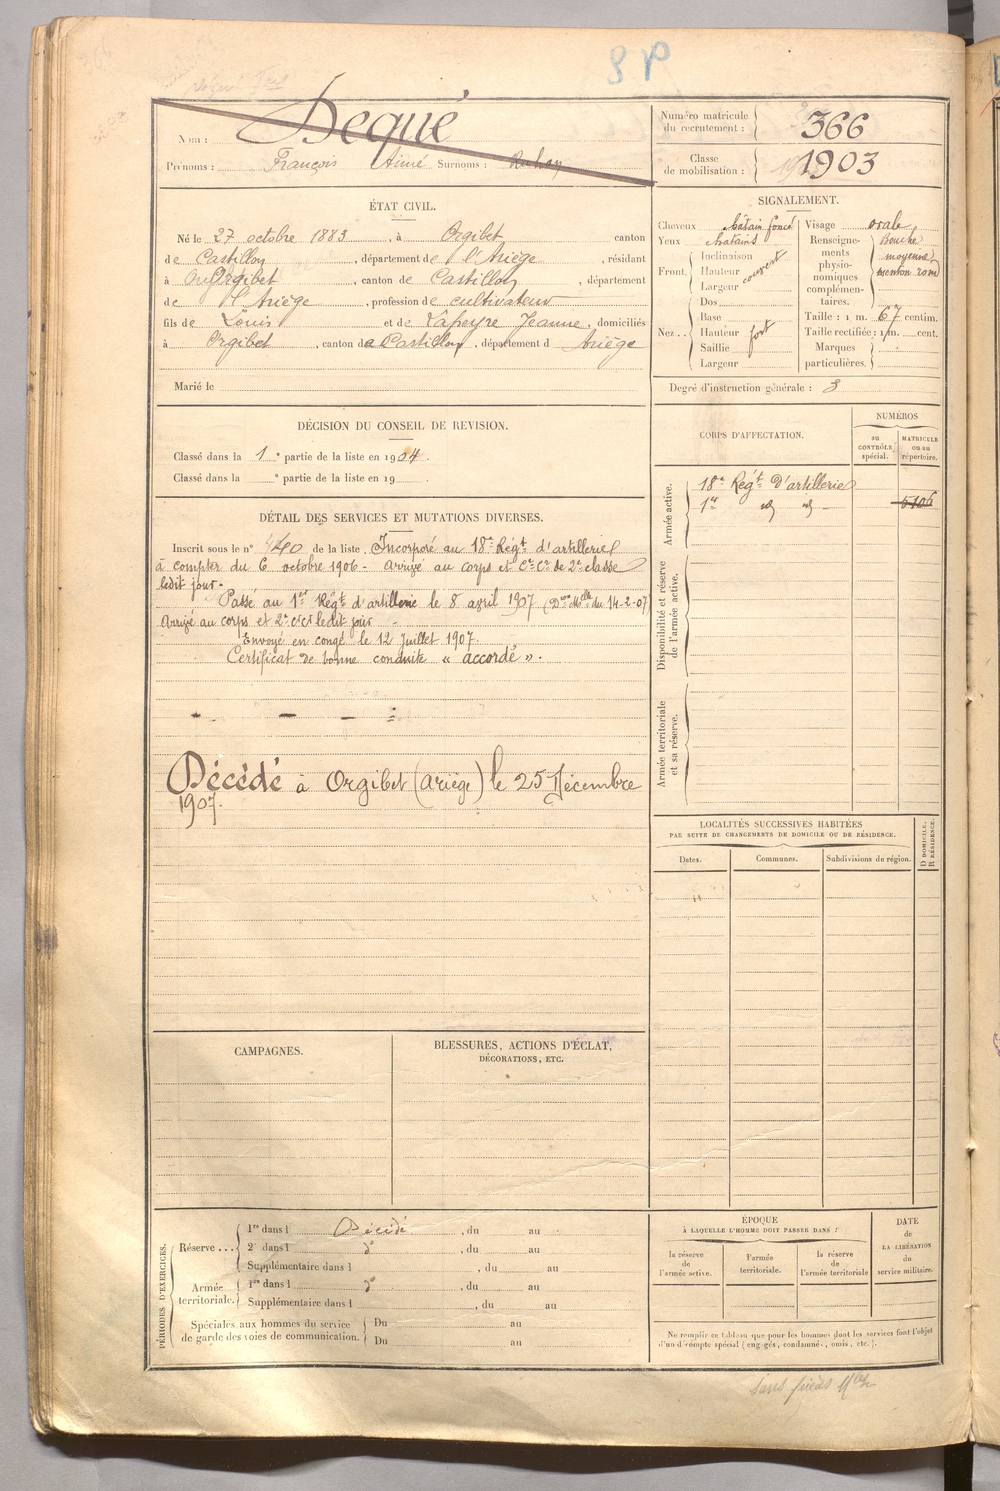 SP
Nom : Dequé
Prénoms : François Aimé Surnoms :
Numéro matricule du recrutement : 366
Classe de mobilisation : 1903
ÉTAT CIVIL.
Né le 27 octobre 1883, à Orgibet, canton
de Castillon, département de l'Ariège, résidant
à Orgibet, canton de Castillon, département
de l'Ariège, profession de cultivateur
fils de Louis et de Lapeyre Jeanne, domiciliés
à Orgibet, canton de Castillon, département d Ariège
Marié le
SIGNALEMENT.
Cheveux chatain foncé
Yeux chatains
Front. Inclinaison
Hauteur couvert
Largeur
Nez... Dos
Base
Hauteur fort
Saillie
Largeur
Visage ovale
Renseignements physionomiques complémentaires. Bouche moyenne menton rond
Taille : 1 m. 67 centim.
Taille rectifiée : 1 m. cent.
Marques particulières.
Degré d'instruction générale : 3
DÉCISION DU CONSEIL DE REVISION.
Classé dans la 1e partie de la liste en 1904.
Classé dans la e partie de la liste en 19
CORPS D'AFFECTATION.
NUMÉROS
au CONTRÔLE spécial.
MATRICULE ou au répertoire.
Armée active.
18e Régt D'artillerie
1er
Disponibilité et réserve de l'armée active.
Armée territoriale et sa réserve.
DÉTAIL DES SERVICES ET MUTATIONS DIVERSES.
Inscrit sous le n° de la liste. Incorporé au 18e Régt d'artillerie
à compter du 6 octobre 1906 - Arrivé au corps et Ct Cr de 2e classe
ledit jour.
Passé au 1er Régt d'artillerie le 8 avril 1907 (Don Mlle du 14-2-07)
Arrivé au corps et 2e c ct ledit jour -
Envoyé en congé le 12 Juillet 1907.
Certificat de bonne conduite « accordé ».
Décédé à Orgibet (Ariège) le 25 Décembre
1907.
LOCALITÉS SUCCESSIVES HABITÉES
PAR SUITE DE CHANGEMENTS DE DOMICILE OU DE RÉSIDENCE.
Dates.
Communes.
Subdivisions de région.
D DOMICILE. R RÉSIDENCE.
CAMPAGNES.
BLESSURES, ACTIONS D'ÉCLAT,
DÉCORATIONS, ETC.
PÉRIODES D'EXERCICES.
Réserve... 1re dans l Décédé, du au
2e dans l do, du au
Supplémentaire dans l , du au
Armée territoriale. 1re dans l do, du au
Supplémentaire dans l , du au
Spéciales aux hommes du service de garde des voies de communication. Du au
Du au
ÉPOQUE
À LAQUELLE L'HOMME DOIT PASSER DANS :
la réserve de l'armée active.
l'armée territoriale.
la réserve de l'armée territoriale
DATE de LA LIBÉRATION du service militaire.
Ne remplir ce tableau que pour les hommes dont les services font l'objet
d'un décompte spécial (engagés, condamnés, omis, etc.).